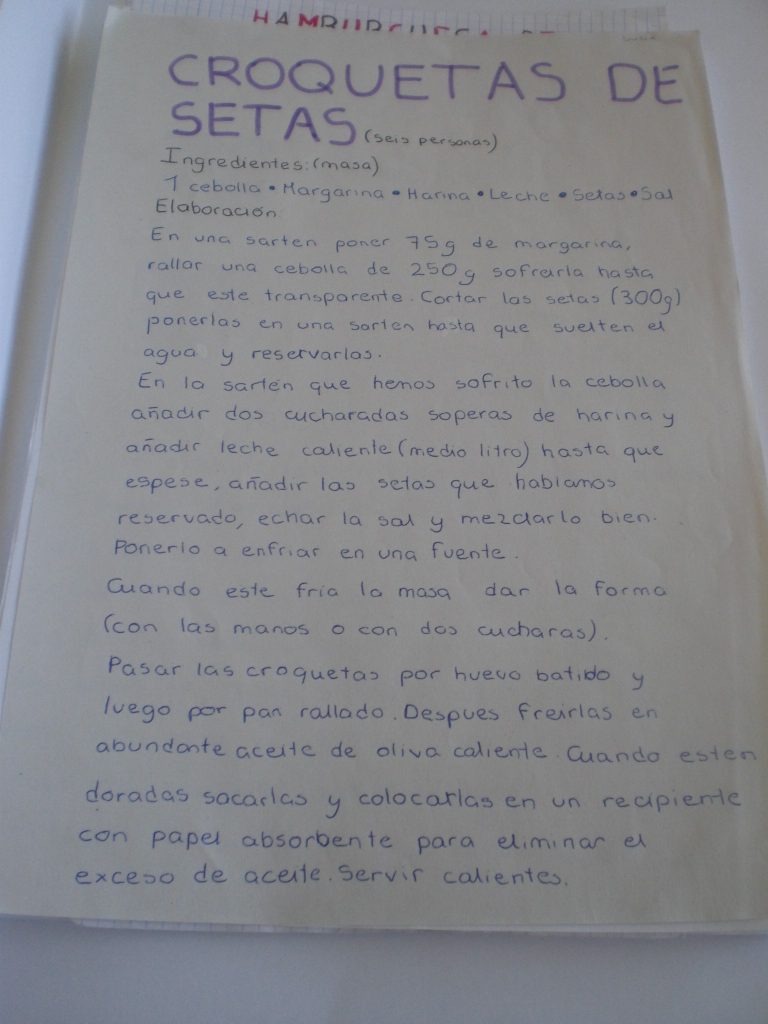 CROQUETAS DE
SETAS (seis personas)
Ingredientes: (masa)
1 cebolla • Margarina • Harina • Leche • Setas • Sal
Elaboración
En una sarten poner 75g de margarina,
rallar una cebolla de 250g sofreirla hasta
que este transparente. Cortar las setas (300g)
ponerlas en una sarten hasta que suelten el
agua y reservarlas.
En la sarten que hemos sofrito la cebolla
añadir dos cucharadas soperas de harina y
añadir leche caliente (medio litro) hasta que
espese, añadir las setas que habiamos
reservado, echar la sal y mezclarlo bien.
Ponerlo a enfriar en una fuente.
Cuando este fria la masa dar la forma
(con las manos o con dos cucharas).
Pasar las croquetas por huevo batido y
luego por pan rallado. Despues freirlas en
abundante aceite de oliva caliente. Cuando esten
doradas sacarlas y colocarlas en un recipiente
con papel absorbente para eliminar el
exceso de aceite. Servir calientes.